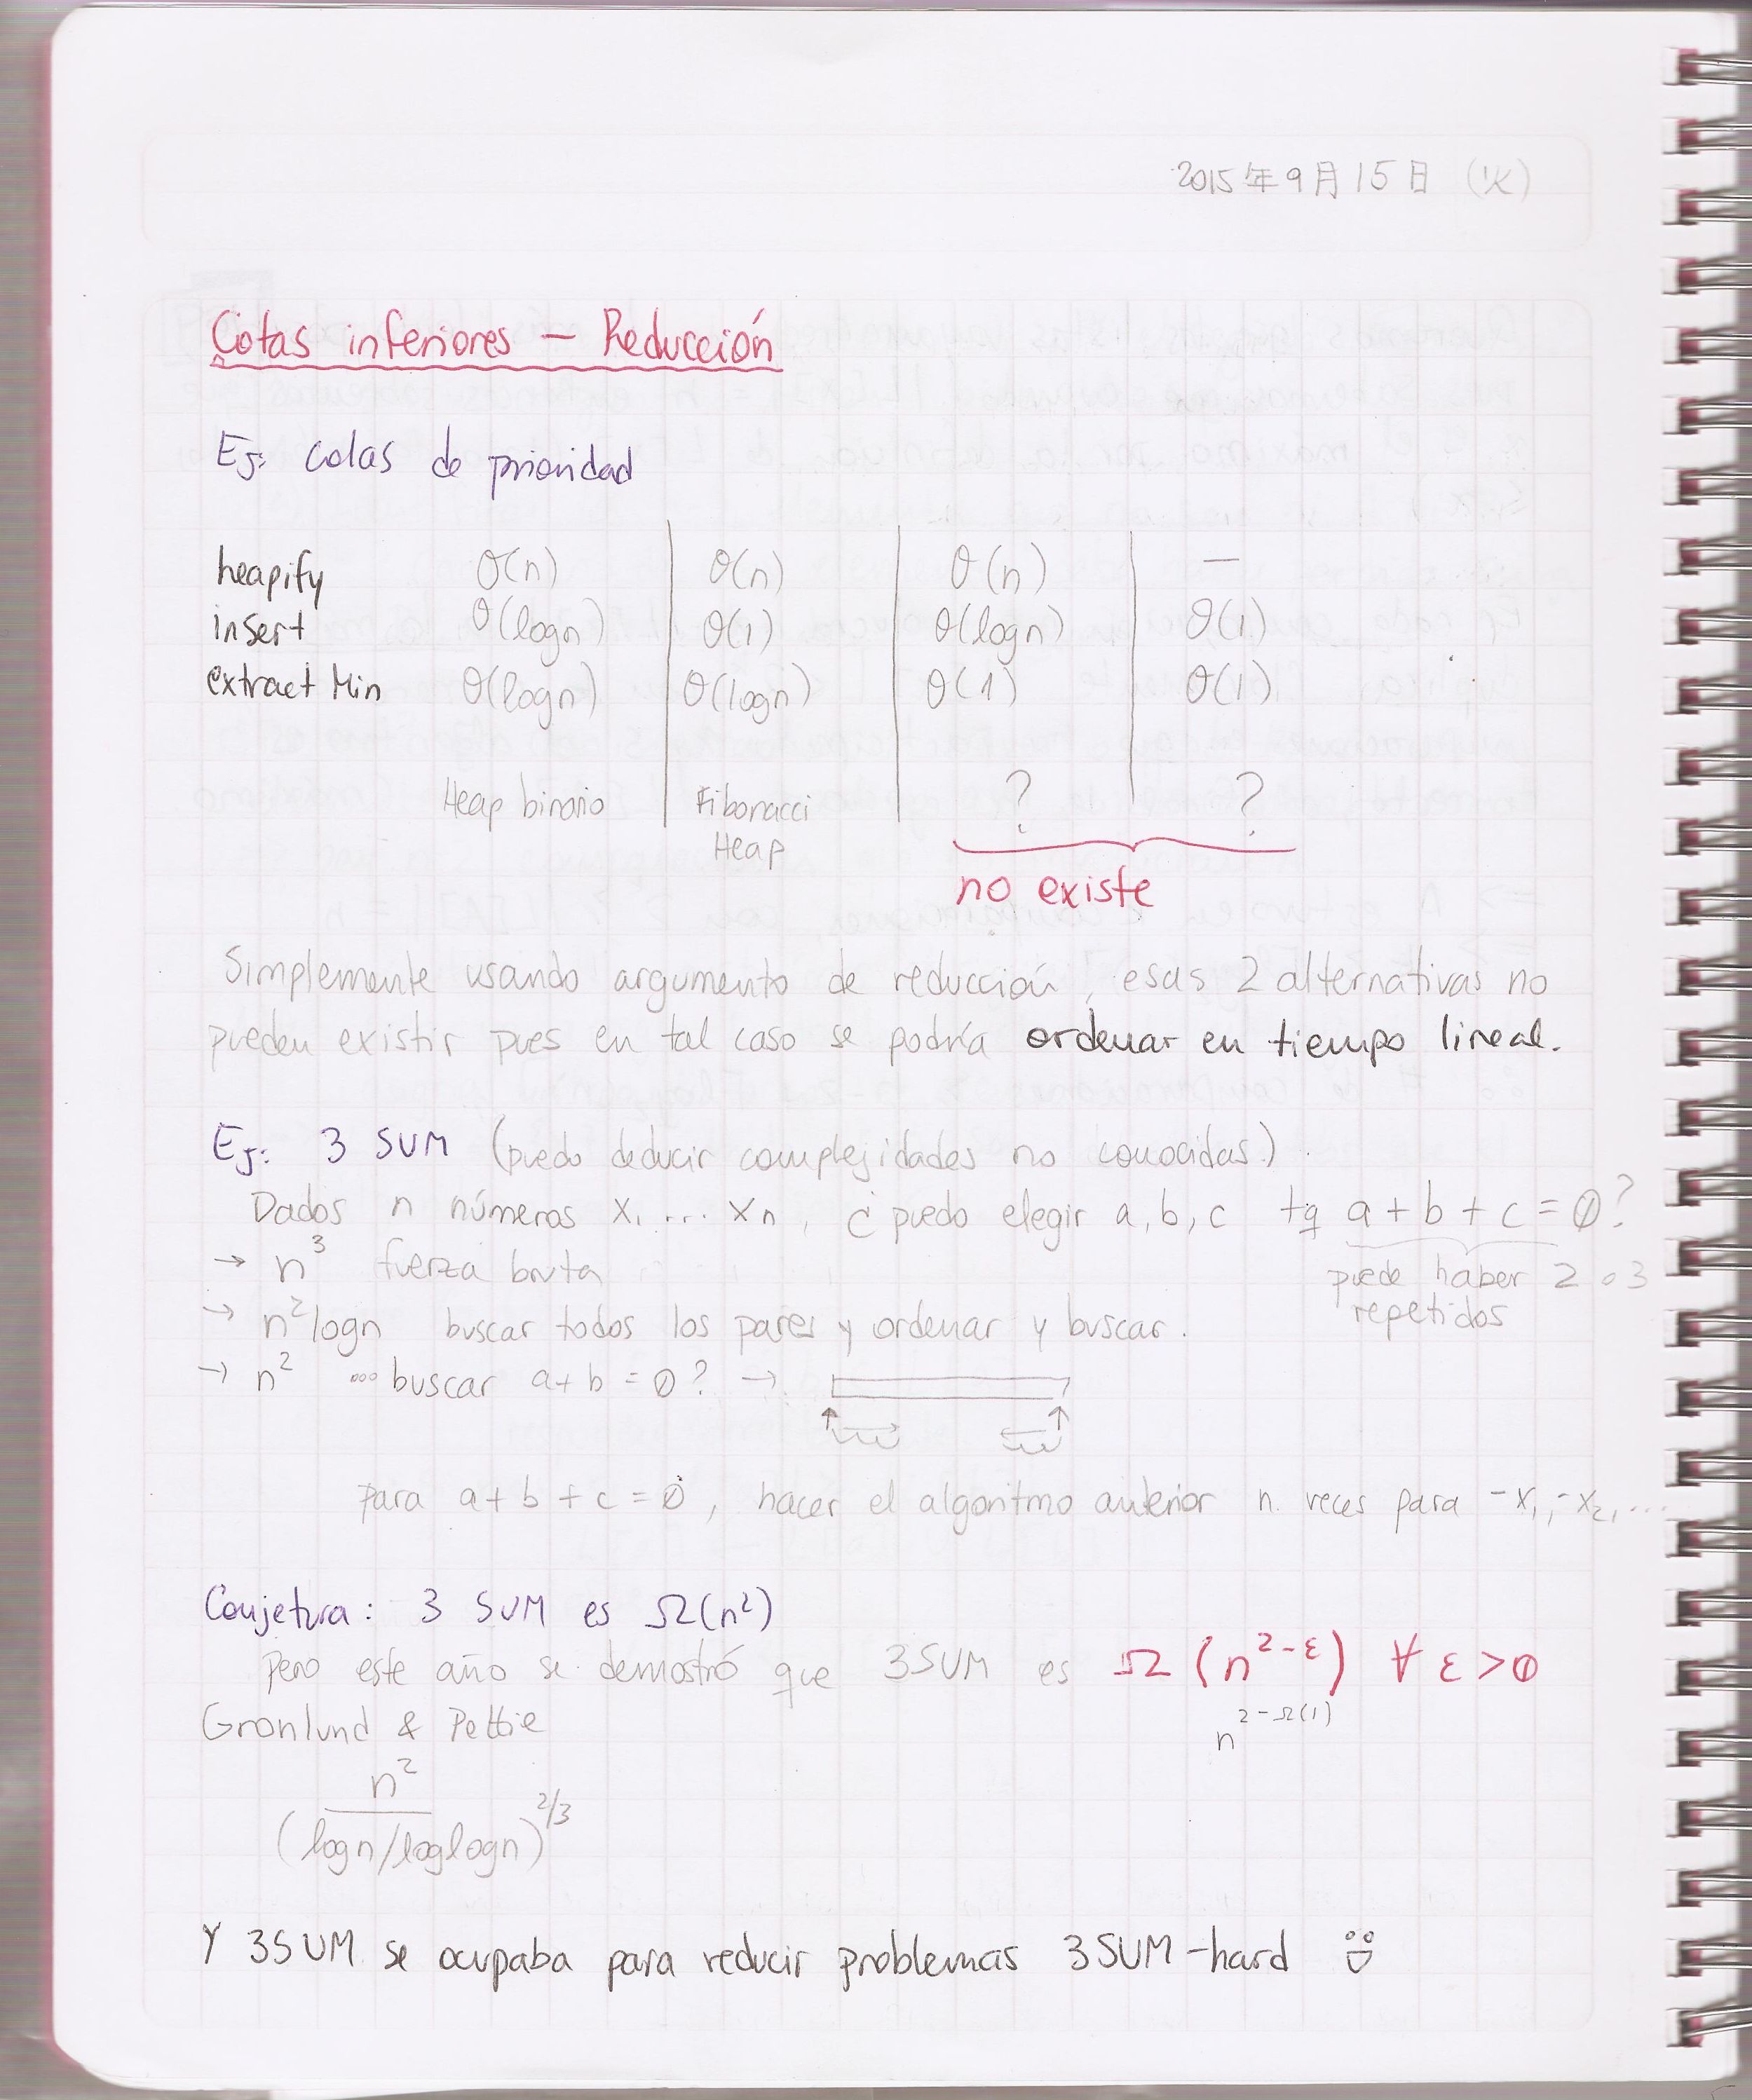 2015年9月15日 (火)
Cotas inferiores — Reducción
Ej: colas de prioridad
heapify θ(n) θ(n) θ(n) —
insert θ(logn) θ(1) θ(logn) θ(1)
extract Min θ(logn) θ(logn) θ(1) θ(1)
Heap binario Fibonacci Heap ? ?
no existe
Simplemente usando argumento de reducción, esas 2 alternativas no
pueden existir pues en tal caso se podría ordenar en tiempo lineal.
Ej: 3 SUM (puedo deducir complejidades no conocidas)
Dados n números x₁ ... xn, ¿puedo elegir a, b, c tq a + b + c = 0?
→ n³ fuerza bruta
puede haber 2 o 3
repetidos
→ n² logn buscar todos los pares y ordenar y buscar.
→ n² ... buscar a + b = 0? →
para a + b + c = 0, hacer el algoritmo anterior n veces para -x₁, -x₂, ...
Conjetura: 3 SUM es Ω(n²)
Pero este año se demostró que 3SUM es Ω(n^{2-ε}) ∀ ε > 0
n^{2-Ω(1)}
Gronlund & Pettie
n²
(logn/loglogn)^{2/3}
Y 3SUM se ocupaba para reducir problemas 3SUM-hard